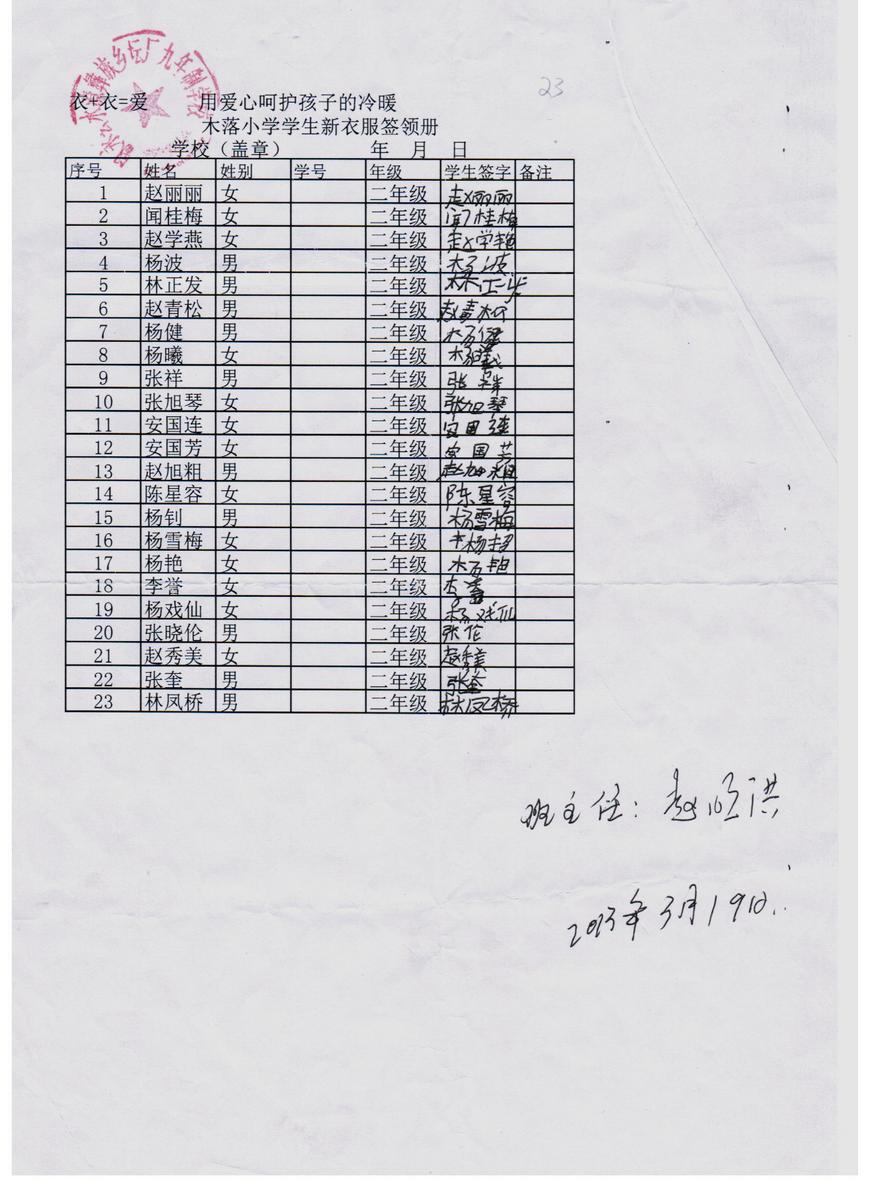 23
衣+衣=爱 用爱心呵护孩子的冷暖
木落小学学生新衣服签领册
学校（盖章） 年 月 日
序号 姓名 姓别 学号 年级 学生签字 备注
1 赵丽丽 女 二年级 赵丽丽
2 闻桂梅 女 二年级 闻桂梅
3 赵学燕 女 二年级 赵学艳
4 杨波 男 二年级 杨波
5 林正发 男 二年级 林正
6 赵青松 男 二年级 赵青松
7 杨健 男 二年级 杨健
8 杨曦 女 二年级 杨
9 张祥 男 二年级 张祥
10 张旭琴 女 二年级 张旭琴
11 安国连 女 二年级 安国连
12 安国芳 女 二年级 安国芳
13 赵旭粗 男 二年级 赵旭粗
14 陈星容 女 二年级 陈星容
15 杨钊 男 二年级 杨雪梅
16 杨雪梅 女 二年级
17 杨艳 女 二年级 杨艳
18 李誉 女 二年级 李
19 杨戏仙 女 二年级 杨戏仙
20 张晓伦 男 二年级 张伦
21 赵秀美 女 二年级 赵秀美
22 张奎 男 二年级 张奎
23 林凤桥 男 二年级 林凤桥
班主任：赵顺洪
2013年3月19日